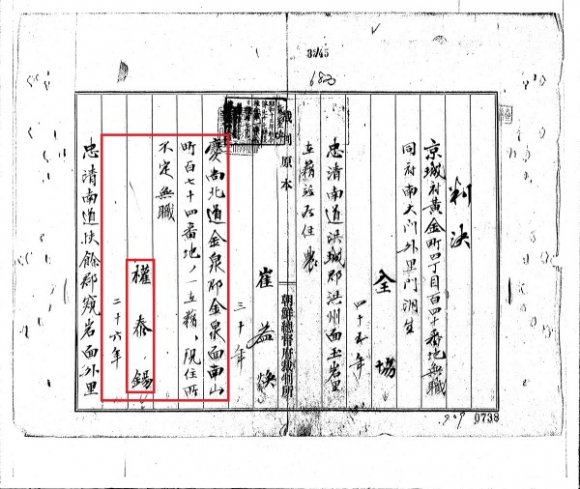 683
裁判原本
判決
京城府黃金町四丁目百四十番地無職
同府南大門外里門洞生
全協
忠淸南道洪城郡洪州面玉岩里
在籍並居住農
崔益煥
三十年
朝鮮總督府裁判所
慶尙北道金泉郡金泉面南山
町百七十四番地ノ一在籍、現住所
不定無職
權泰錫
二十六年
忠淸南道扶餘郡窺岩面外里
0738